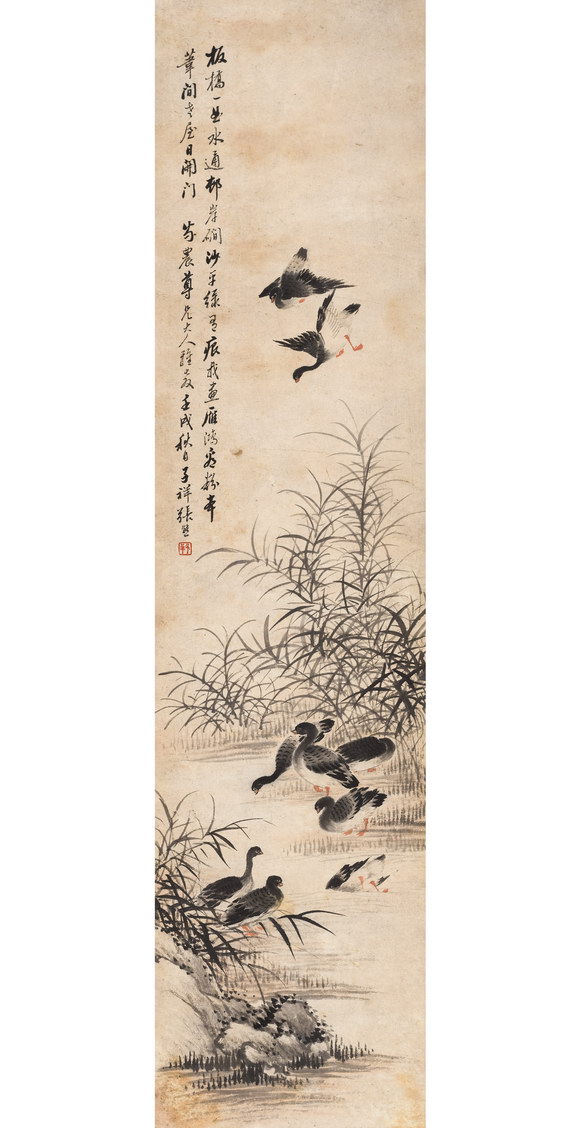 板橋一曲水通邨岸闊沙平綠有痕我畫雁鴻粉本
葦間老屋日開門 農尊兄大人雅教 壬戌秋日子祥張熊